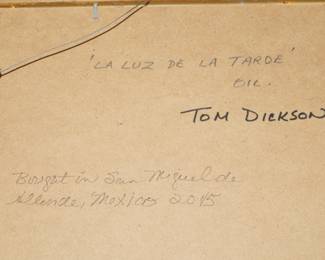 'LA LUZ DE LA TARDE'
OIL.
TOM DICKSON
Bought in San Miguel de
Allende, Mexico 2015